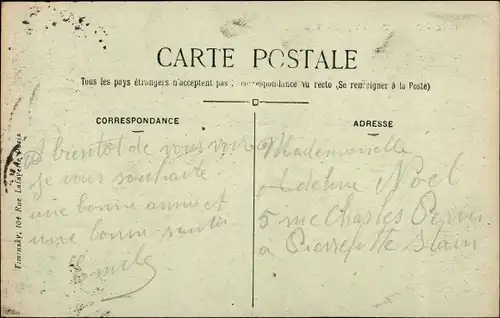 CARTE POSTALE
Tous les pays étrangers n'acceptent pas correspondance au recto (Se renseigner à la Poste)
CORRESPONDANCE
A bientot de vous voir
je vous souhaite
une bonne année et
une bonne santé
Emile
ADRESSE
Mademoiselle
Adeline Noel
5 rue Charles
à Pierrefitte Stain
Timinsky, 104 Rue Lafayette, Paris